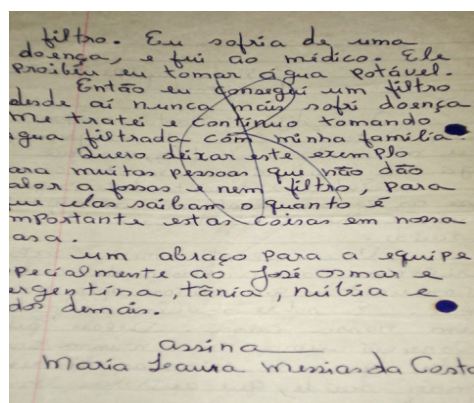 filtro. Eu sofria de uma
doença, e fui ao médico. Ele
proibiu eu tomar água potável.
Então eu consegui um filtro
desde aí nunca mais sofri doença
me tratei e continuo tomando
gua filtrada com minha família.
Quero deixar este exemplo
ara muitas pessoas que não dão
alor a fossas e nem filtro, para
ue elas saibam o quanto é
mportante estas coisas em nossa
asa.
um abraço para a equipe
pecialmente ao José osmar e
ergentina, tânia, núbia e
dos demais.
assina
Maria Laura Messias da Costa